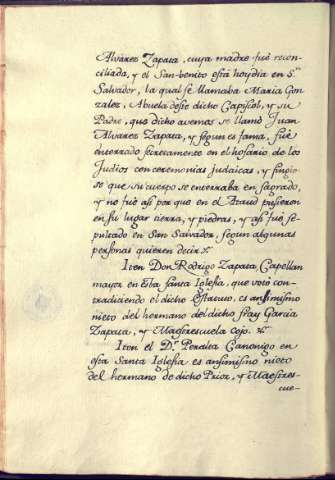 Alvarez Zapata, cuya madre fué recon-
ciliada, y el San-benito está hoy dia en S.n
Salvador, la qual se llamaba Maria Gon-
zalez, Abuela deste dicho Capiscol, y su
Padre, que dicho avemos se llamó Juan
Alvarez Zapata, y segun es fama, fué
enterrado secretamente en el hosario de los
Judios con ceremonias judaicas, y fingio-
se que su cuerpo se enterraba en sagrado,
y no fué asi por que en el Ataud pusieron
en su lugar tierra, y piedras, y asi fué se-
pultado en San Salvador, segun algunas
personas quieren decir.
Iten Don Rodrigo Zapata, Capellan
mayor en esta santa Iglesia, que votó con-
tradiciendo el dicho Estatuto, es ansimismo
nieto del hermano del dicho fray Garcia
Zapata, y Maestrescuela cojo.
Iten el D.r Peralta Canonigo en
esta Santa Iglesia es ansimismo nieto
del hermano de dicho Prior, y Maestres-
cue-